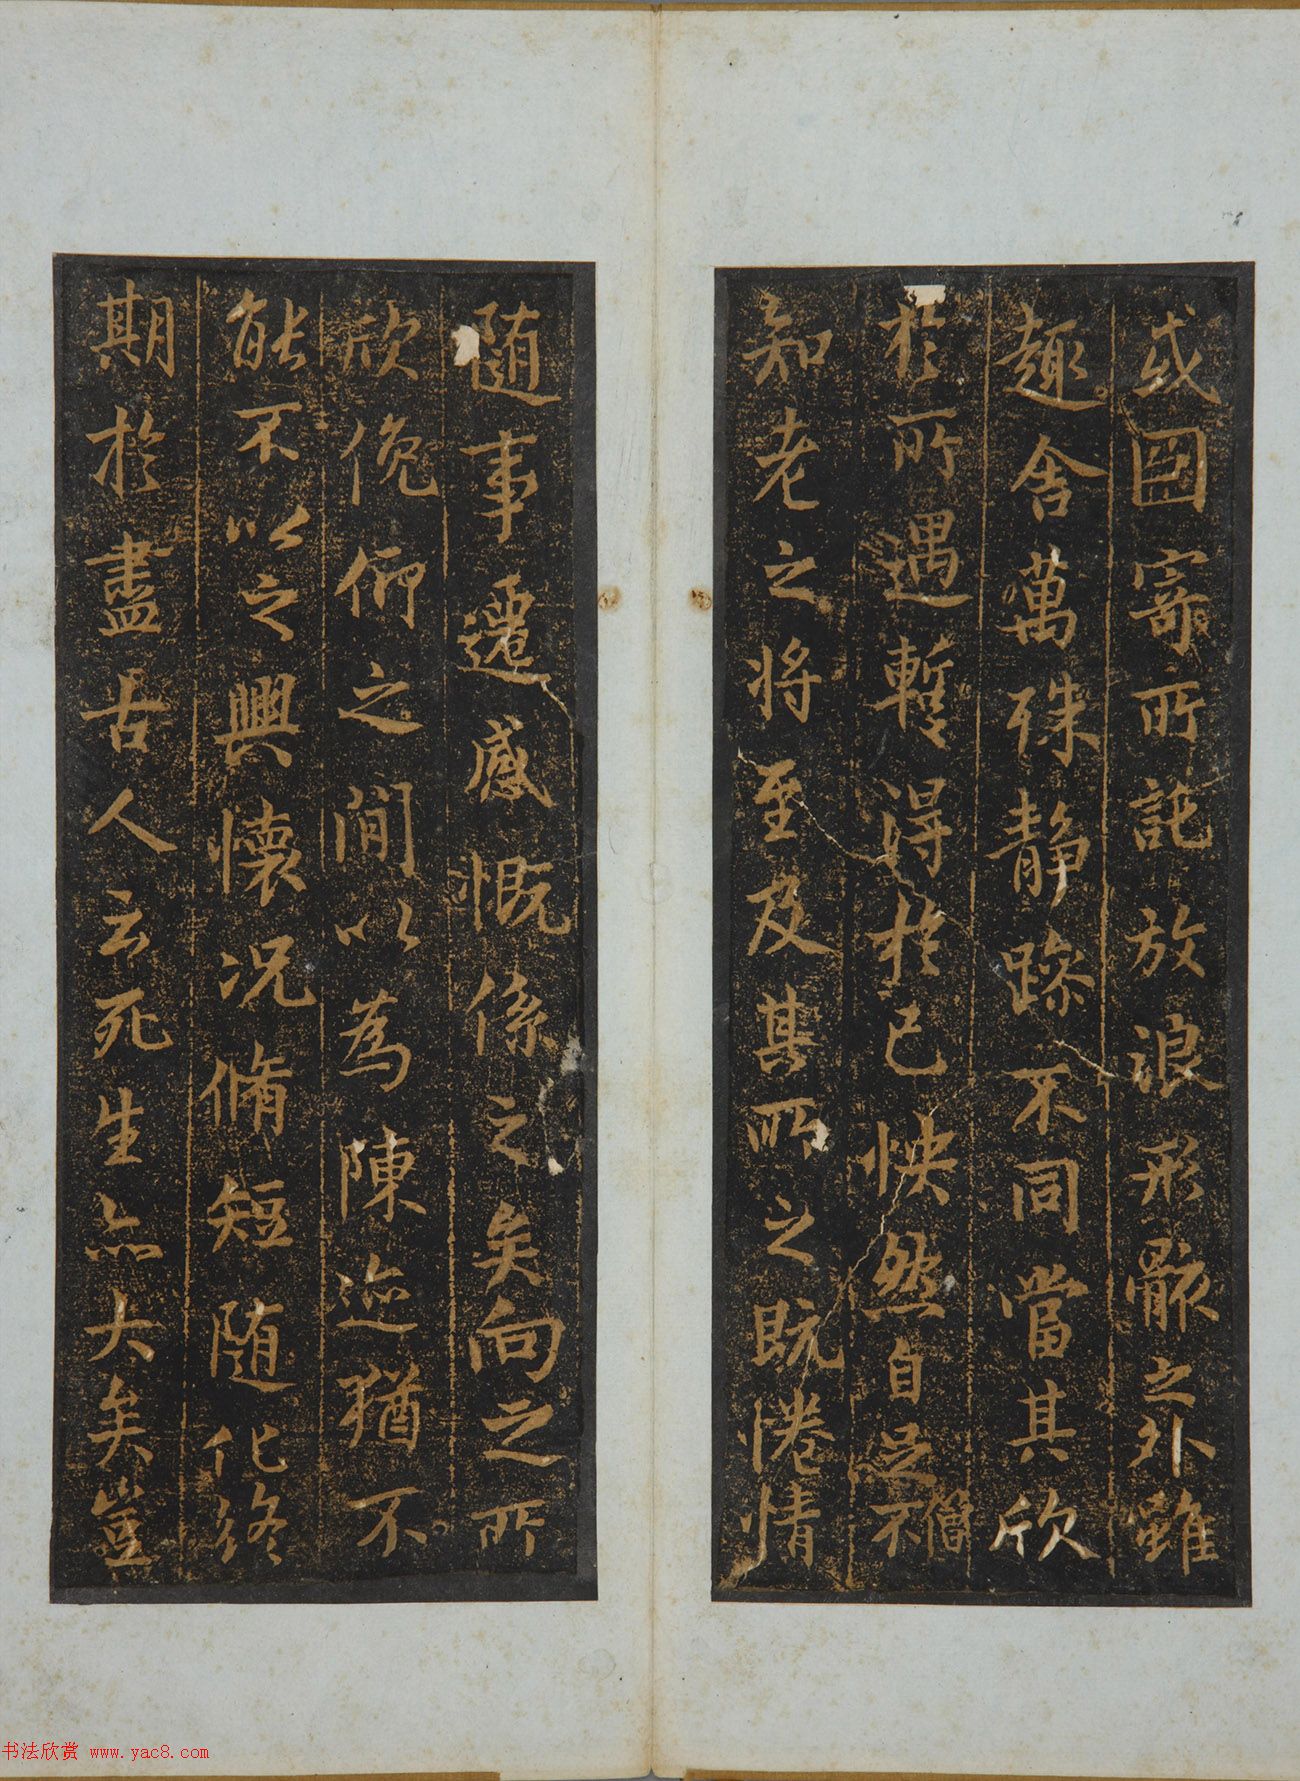 或因寄所託放浪形骸之外雖
趣舍萬殊静躁不同當其欣
於所遇蹔得於己怏然自足不
僧
知老之將至及其所之既惓情
隨事遷感慨係之矣向之所
欣俛仰之閒以為陳迹猶不
能不以之興懷況脩短隨化終
期於盡古人云死生亦大矣豈
书法欣赏 www.yac8.com